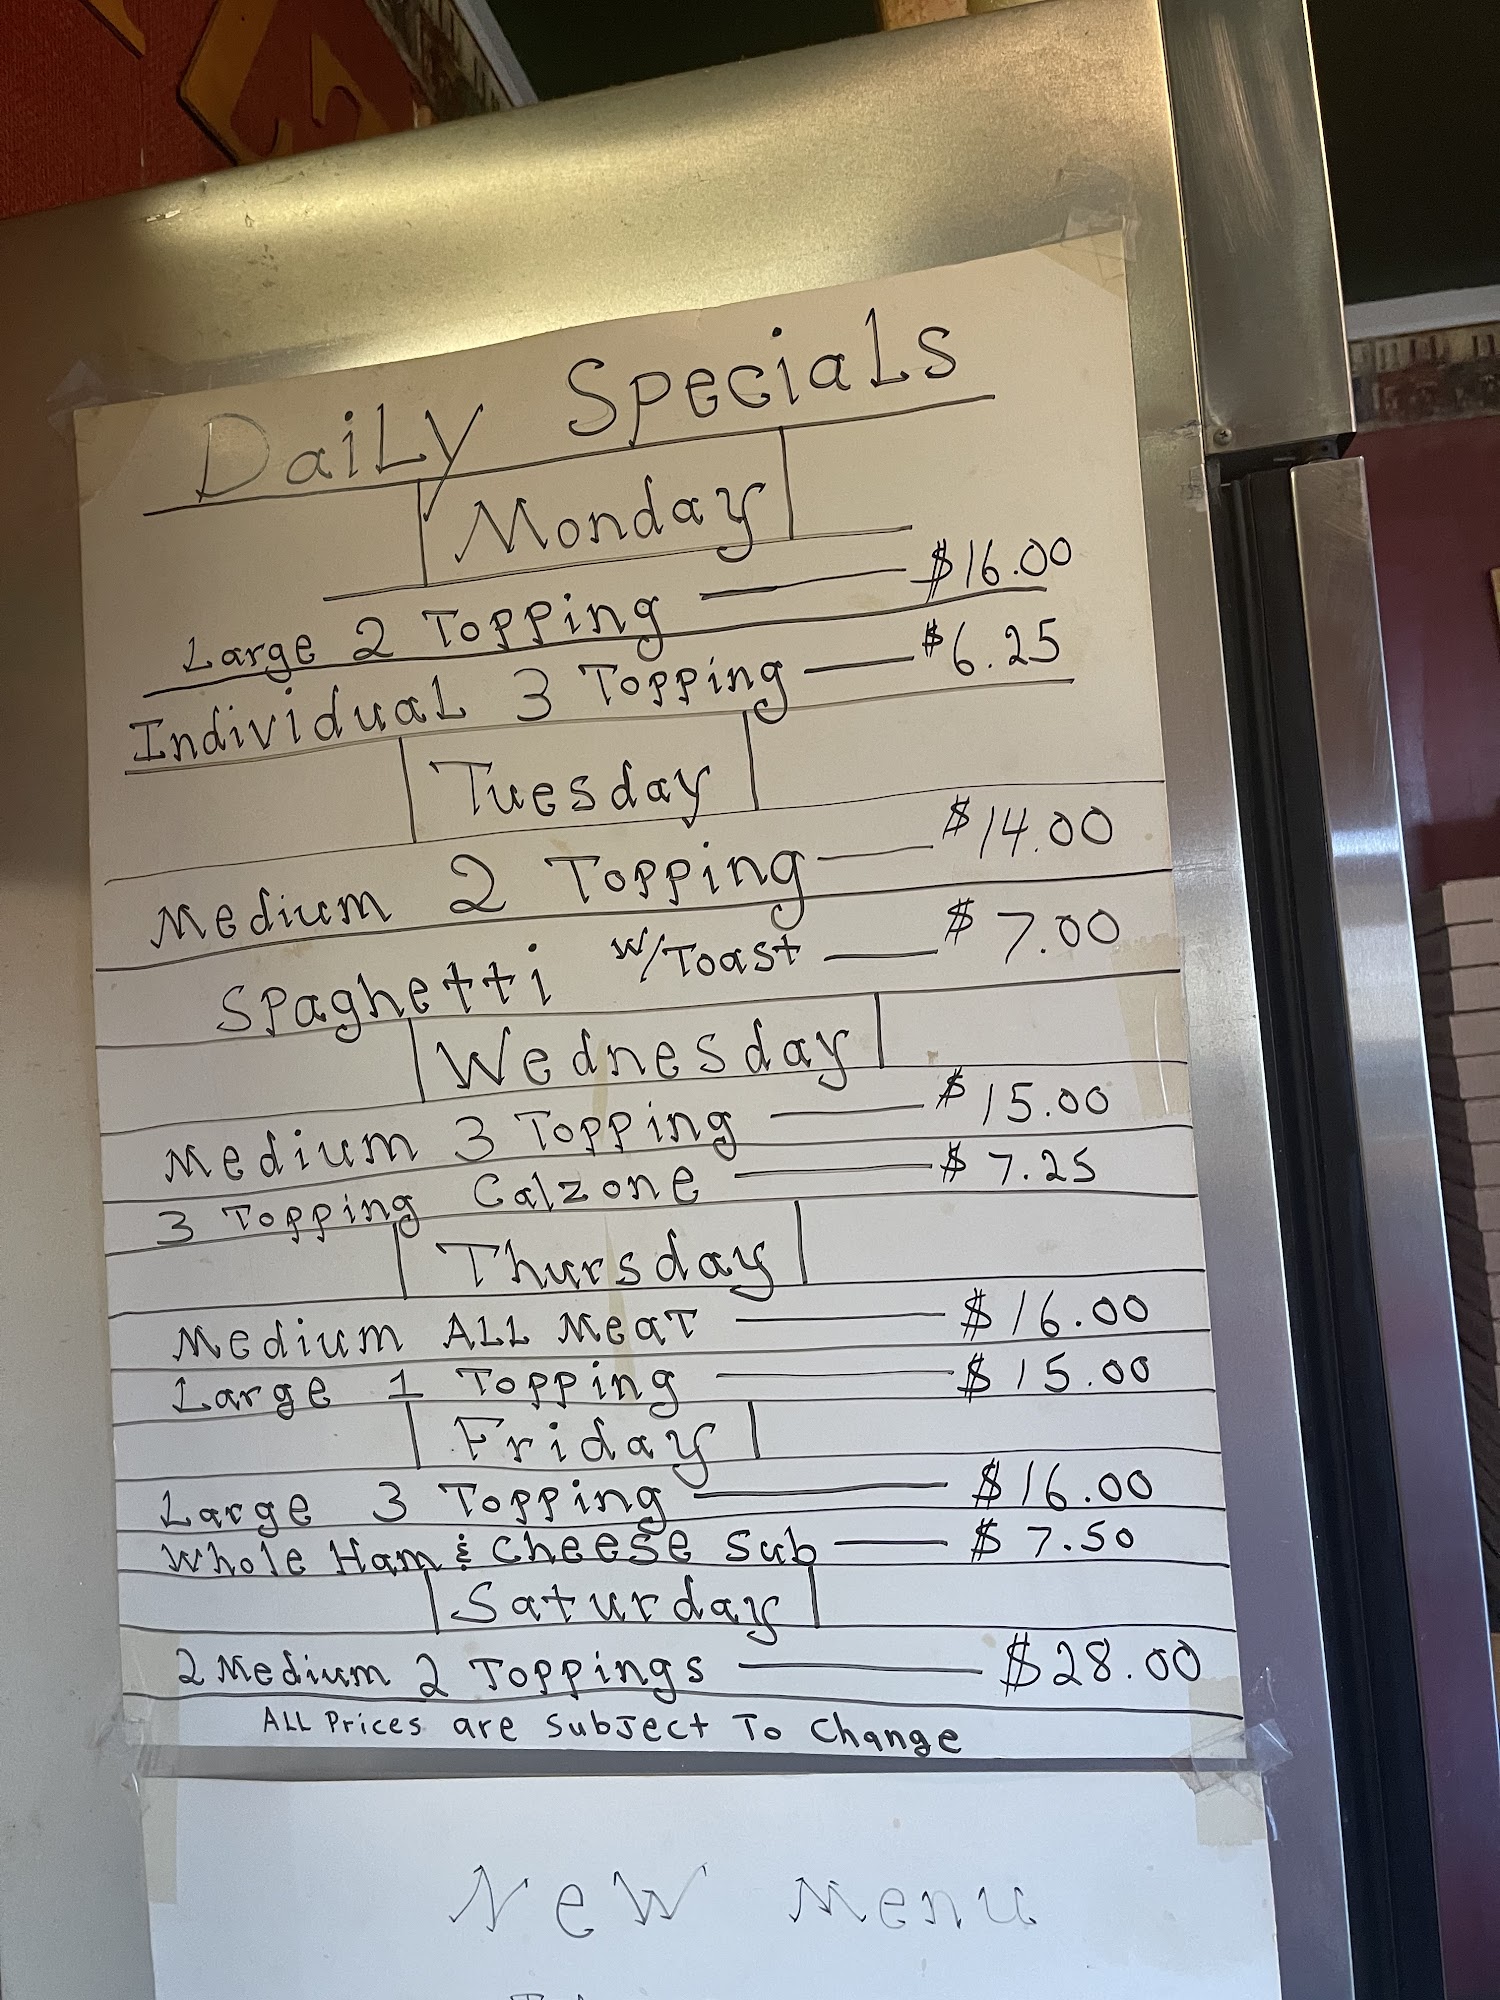 Daily Specials
Monday
Large 2 Topping $16.00
Individual 3 Topping $6.25
Tuesday
Medium 2 Topping $14.00
Spaghetti w/Toast $7.00
Wednesday
Medium 3 Topping $15.00
3 Topping Calzone $7.25
Thursday
Medium ALL Meat $16.00
Large 1 Topping $15.00
Friday
Large 3 Topping $16.00
Whole Ham & Cheese Sub $7.50
Saturday
2 Medium 2 Toppings $28.00
ALL Prices are Subject To Change
New Menu